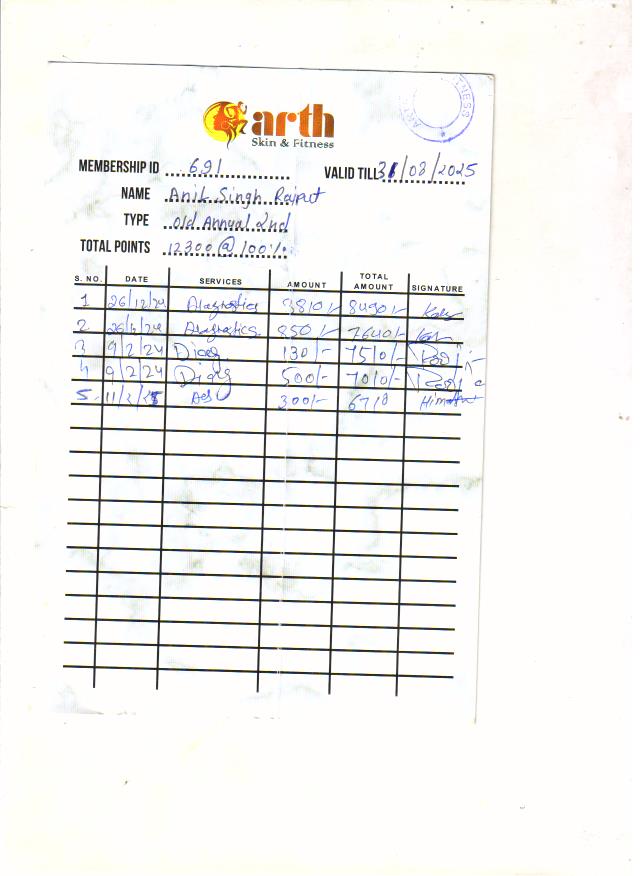 arth
Skin & Fitness
FITNESS
MEMBERSHIP ID 691 VALID TILL 31/08/2025
NAME Anil Singh Rajput
TYPE old Annual 2nd
TOTAL POINTS 12300 @ 100%
S. NO. DATE SERVICES AMOUNT TOTAL AMOUNT SIGNATURE
1 26/12/24 Diagnostics 3810/- 8490/-
2 26/12/24 Diagnostics 850/- 7640/-
3 9/2/24 Diag 130/- 7510/-
4 9/2/24 Diag 500/- 7010/-
5 11/2/25 300/- 6710